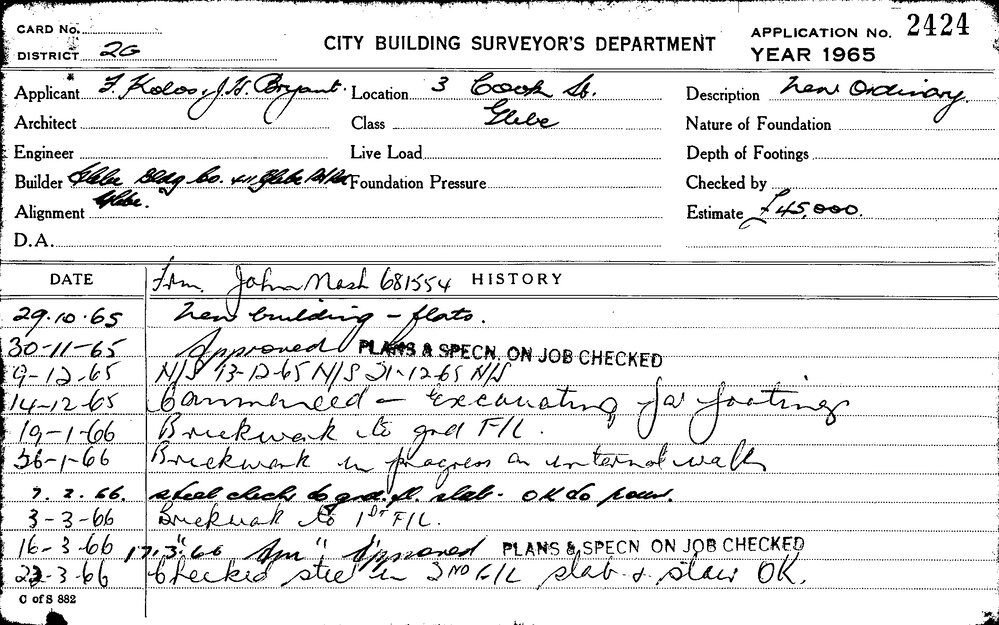 CARD No.
DISTRICT 2G
CITY BUILDING SURVEYOR'S DEPARTMENT
APPLICATION No. 2424
YEAR 1965
Applicant F. Kolos, J.H. Bryant. Location 3 Cook St. Description New Ordinary.
Architect Class Glebe Nature of Foundation
Engineer Live Load Depth of Footings
Builder Glebe Bldg Co. Glebe Foundation Pressure Checked by
Alignment Glebe. Estimate £45,000.
D.A.
DATE John Nash 681554 HISTORY
29.10.65 New building - flats.
30-11-65 Approved PLANS & SPECN. ON JOB CHECKED
9-12-65 N/S 13-12-65 N/S 21-12-65 N/S
14-12-65 Commenced - Excavating for footings
19-1-66 Brickwork to grd F/L.
26-1-66 Brickwork in progress on internal walls
7.2.66. steel check to grd. fl. slab. OK to pour.
3-3-66 Brickwork to 1st F/L.
16-3-66 17.3.66 Approved PLANS & SPECN ON JOB CHECKED
22-3-66 Checked steel in 2ND F/L slab & stair OK.
C of S 882